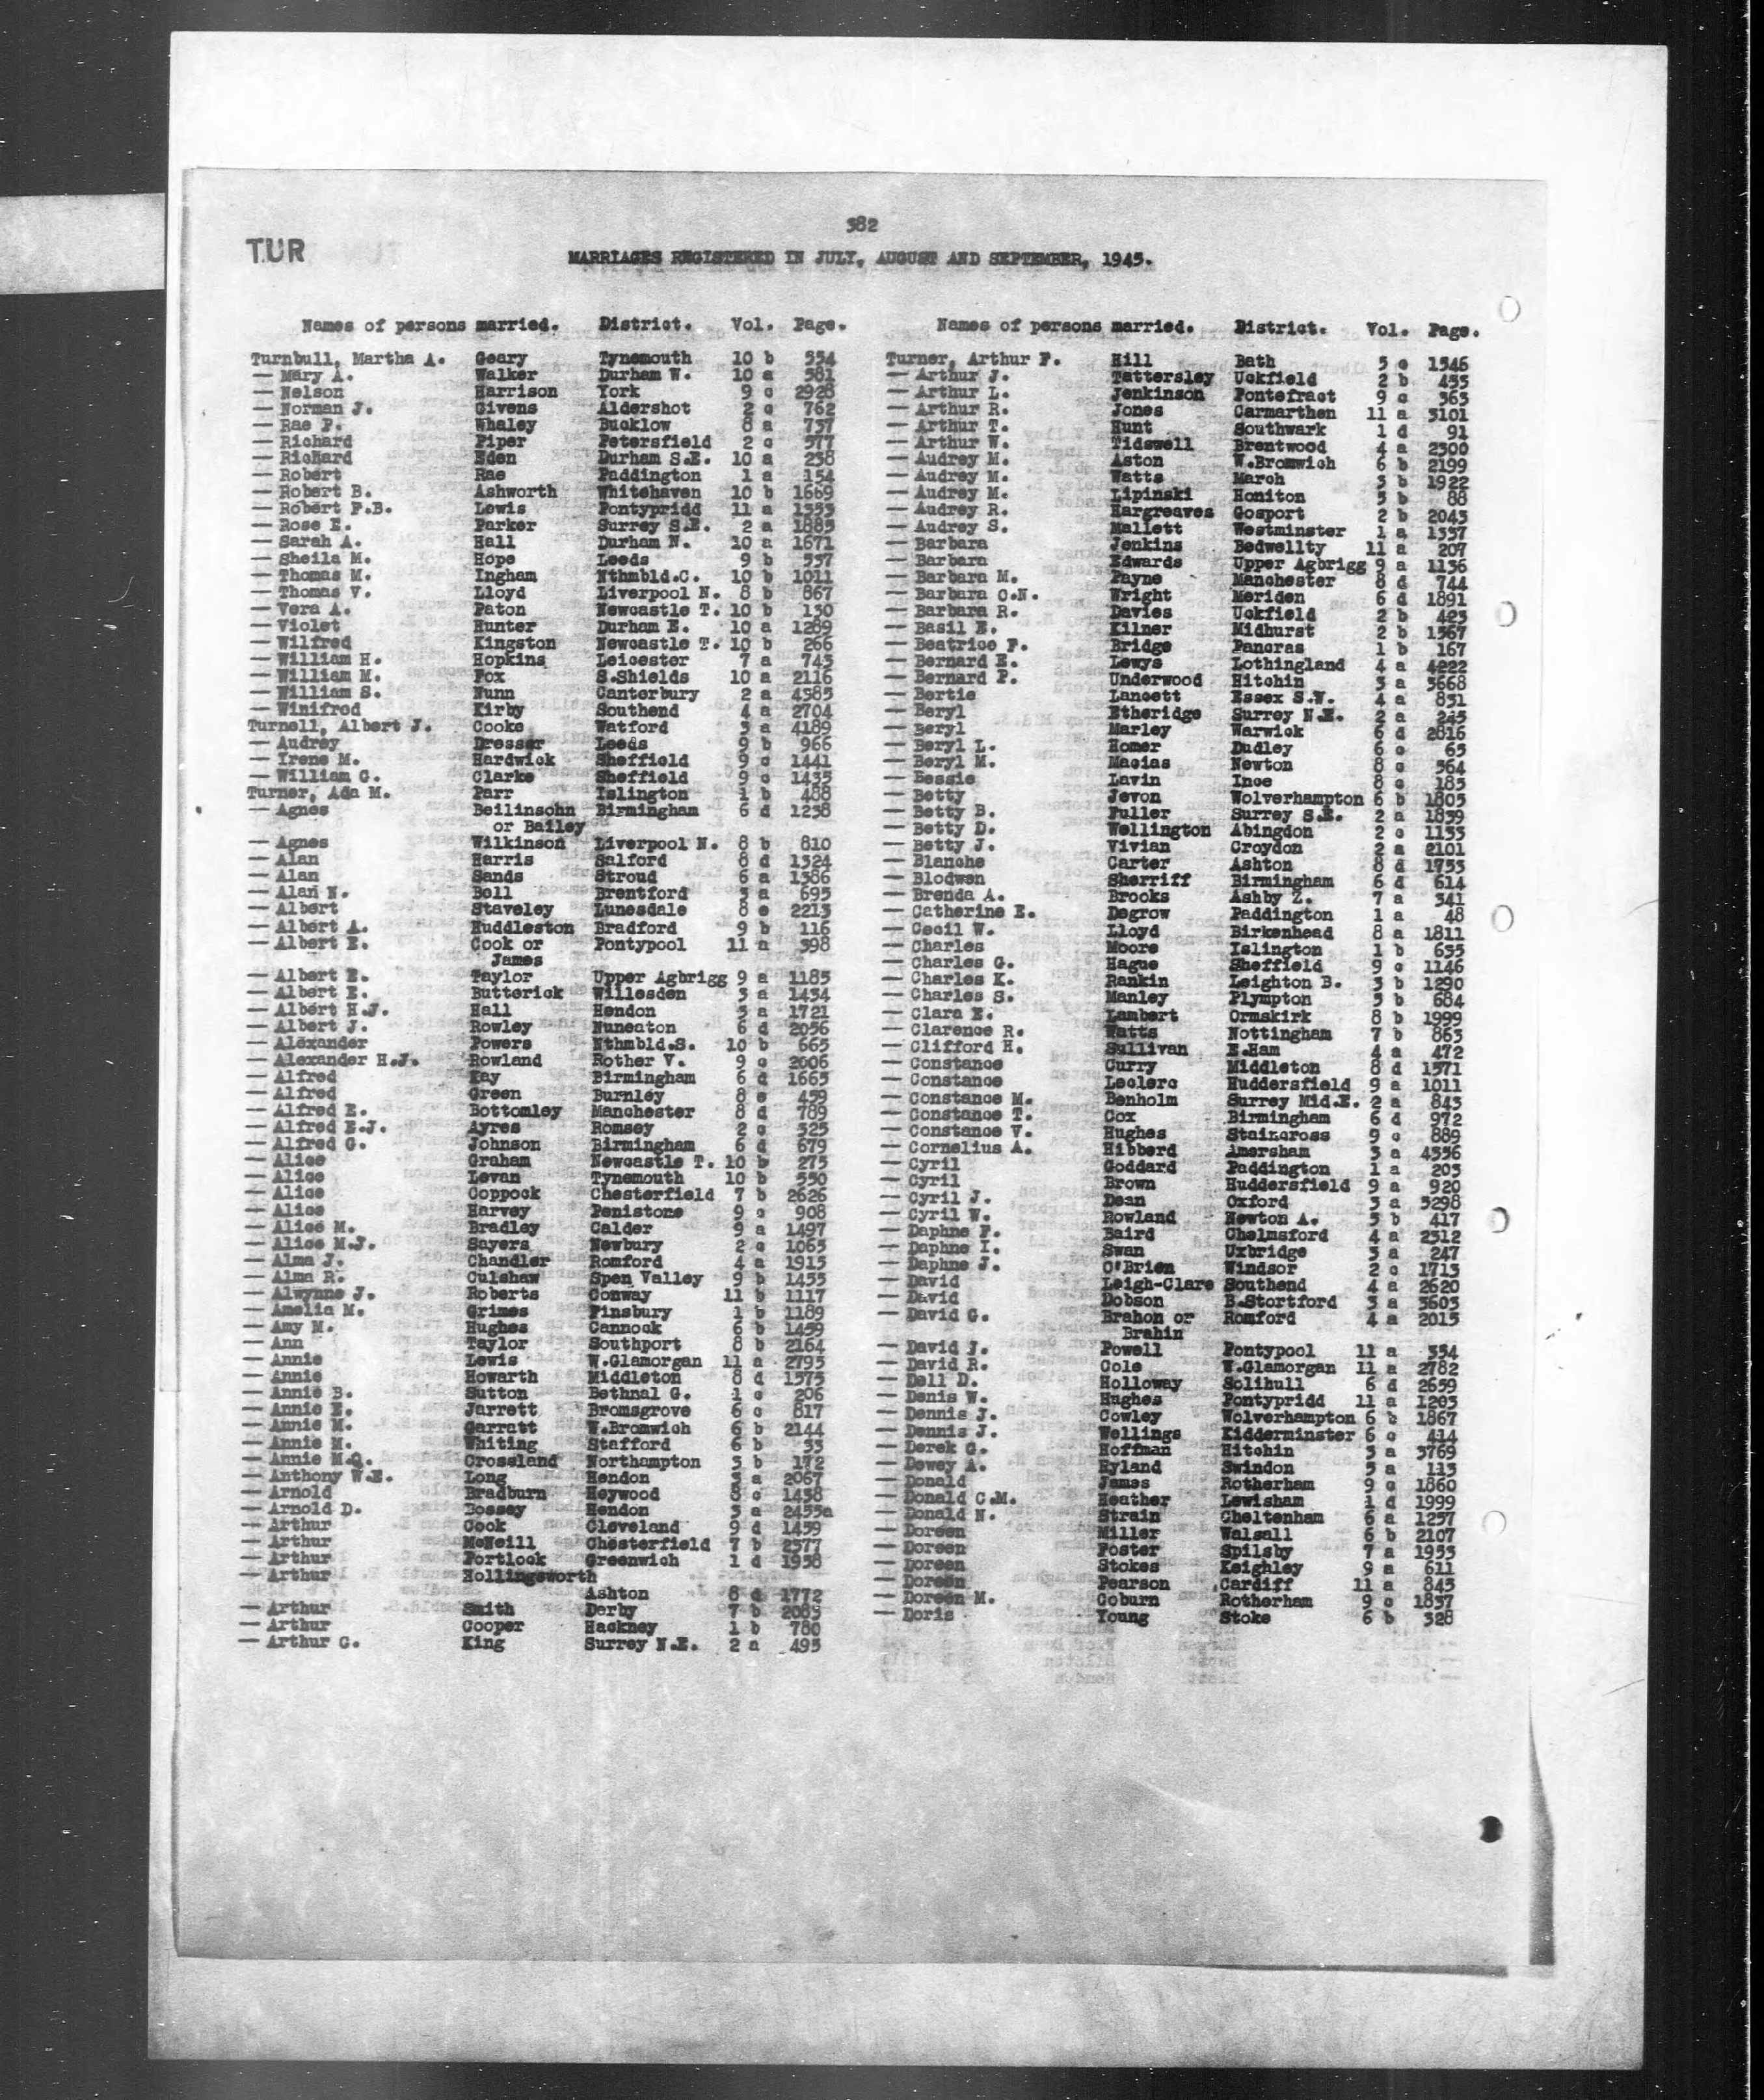 382
TUR
MARRIAGES REGISTERED IN JULY, AUGUST AND SEPTEMBER, 1945.
Names of persons married. District. Vol. Page.
Turnbull, Martha A. Geary Tynemouth 10 b 554
— Mary A. Walker Durham W. 10 a 581
— Nelson Harrison York 9 c 2928
— Norman J. Givens Aldershot 2 c 762
— Rae F. Whaley Bucklow 8 a 737
— Richard Piper Petersfield 2 c 577
— Richard Eden Durham S.E. 10 a 238
— Robert Rae Paddington 1 a 154
— Robert B. Ashworth Whitehaven 10 b 1669
— Robert F.B. Lewis Pontypridd 11 a 1353
— Rose E. Parker Surrey S.E. 2 a 1885
— Sarah A. Hall Durham N. 10 a 1671
— Sheila M. Hope Leeds 9 b 557
— Thomas M. Ingham Nthmbld.C. 10 b 1011
— Thomas V. Lloyd Liverpool N. 8 b 867
— Vera A. Paton Newcastle T. 10 b 130
— Violet Hunter Durham E. 10 a 1289
— Wilfred Kingston Newcastle T. 10 b 266
— William H. Hopkins Leicester 7 a 743
— William M. Fox S.Shields 10 a 2116
— William S. Nunn Canterbury 2 a 4385
— Winifred Kirby Southend 4 a 2704
Turnell, Albert J. Cooke Watford 3 a 4189
— Audrey Dresser Leeds 9 b 966
— Irene M. Hardwick Sheffield 9 c 1441
— William G. Clarke Sheffield 9 c 1435
Turner, Ada M. Parr Islington 1 b 488
— Agnes Beilinsohn Birmingham 6 d 1238
or Bailey
— Agnes Wilkinson Liverpool N. 8 b 810
— Alan Harris Salford 8 d 1324
— Alan Sands Stroud 6 a 1386
— Alan N. Bell Brentford 3 a 695
— Albert Staveley Lunesdale 8 e 2213
— Albert A. Huddleston Bradford 9 b 116
— Albert E. Cook or Pontypool 11 a 398
James
— Albert E. Taylor Upper Agbrigg 9 a 1185
— Albert E. Butterick Willesden 3 a 1434
— Albert H.J. Hall Hendon 3 a 1721
— Albert J. Rowley Nuneaton 6 d 2056
— Alexander Powers Nthmbld.S. 10 b 665
— Alexander H.J. Rowland Rother V. 9 c 2006
— Alfred Kay Birmingham 6 d 1665
— Alfred Green Burnley 8 e 459
— Alfred E. Bottomley Manchester 8 d 789
— Alfred E.J. Ayres Romsey 2 c 325
— Alfred G. Johnson Birmingham 6 d 679
— Alice Graham Newcastle T. 10 b 275
— Alice Levan Tynemouth 10 b 550
— Alice Coppock Chesterfield 7 b 2626
— Alice Harvey Penistone 9 c 908
— Alice M. Bradley Calder 9 a 1497
— Alice M.J. Sayers Newbury 2 c 1065
— Alma J. Chandler Romford 4 a 1915
— Alma R. Culshaw Spen Valley 9 b 1455
— Alwynne J. Roberts Conway 11 b 1117
— Amelia M. Grimes Finsbury 1 b 1189
— Amy M. Hughes Cannock 6 b 1459
— Ann Taylor Southport 8 b 2164
— Annie Lewis W.Glamorgan 11 a 2795
— Annie Howarth Middleton 8 d 1575
— Annie B. Sutton Bethnal G. 1 c 206
— Annie E. Jarrett Bromsgrove 6 c 817
— Annie M. Garratt W.Bromwich 6 b 2144
— Annie M. Whiting Stafford 6 b 33
— Annie M.Q. Crossland Northampton 3 b 172
— Anthony W.E. Long Hendon 3 a 2067
— Arnold Bradburn Heywood 8 c 1438
— Arnold D. Bossey Hendon 3 a 2455a
— Arthur Cook Cleveland 9 d 1459
— Arthur McNeill Chesterfield 7 b 2577
— Arthur Portlock Greenwich 1 d 1958
— Arthur Hollingsworth
Ashton 8 d 1772
— Arthur Smith Derby 7 b 2085
— Arthur Cooper Hackney 1 b 780
— Arthur G. King Surrey N.E. 2 a 495
Names of persons married. District. Vol. Page.
Turner, Arthur F. Hill Bath 5 c 1546
— Arthur J. Tattersley Uckfield 2 b 455
— Arthur L. Jenkinson Pontefract 9 c 363
— Arthur R. Jones Carmarthen 11 a 3101
— Arthur T. Hunt Southwark 1 d 91
— Arthur W. Tidswell Brentwood 4 a 2300
— Audrey M. Aston W.Bromwich 6 b 2199
— Audrey M. Watts March 3 b 1922
— Audrey M. Lipinski Honiton 5 b 88
— Audrey R. Hargreaves Gosport 2 b 2043
— Audrey S. Mallett Westminster 1 a 1337
— Barbara Jenkins Bedwellty 11 a 207
— Barbara Edwards Upper Agbrigg 9 a 1136
— Barbara M. Payne Manchester 8 d 744
— Barbara C.N. Wright Meriden 6 d 1891
— Barbara R. Davies Uckfield 2 b 423
— Basil E. Kilner Midhurst 2 b 1367
— Beatrice F. Bridge Pancras 1 b 167
— Bernard E. Lewys Lothingland 4 a 4222
— Bernard P. Underwood Hitchin 3 a 3668
— Bertie Lancett Essex S.W. 4 a 831
— Beryl Etheridge Surrey N.E. 2 a
— Beryl Marley Warwick 6 d 2816
— Beryl L. Homer Dudley 6 c 65
— Beryl M. Macias Newton 8 c 564
— Bessie Lavin Ince 8 c 185
— Betty Jevon Wolverhampton 6 b 1805
— Betty B. Fuller Surrey S.E. 2 a 1839
— Betty D. Wellington Abingdon 2 c 1133
— Betty J. Vivian Croydon 2 a 2101
— Blanche Carter Ashton 8 d 1753
— Blodwen Sherriff Birmingham 6 d 614
— Brenda A. Brooks Ashby Z. 7 a 341
— Catherine E. Degrow Paddington 1 a 48
— Cecil W. Lloyd Birkenhead 8 a 1811
— Charles Moore Islington 1 b 635
— Charles G. Hague Sheffield 9 c 1146
— Charles K. Rankin Leighton B. 3 b 1290
— Charles S. Manley Plympton 5 b 684
— Clara E. Lambert Ormskirk 8 b 1999
— Clarence R. Watts Nottingham 7 b 863
— Clifford H. Sullivan E.Ham 4 a 472
— Constance Curry Middleton 8 d 1571
— Constance Leclerc Huddersfield 9 a 1011
— Constance M. Benholm Surrey Mid.E. 2 a 843
— Constance T. Cox Birmingham 6 d 972
— Constance V. Hughes Staincross 9 c 889
— Cornelius A. Hibberd Amersham 3 a 4336
— Cyril Goddard Paddington 1 a 203
— Cyril Brown Huddersfield 9 a 920
— Cyril J. Dean Oxford 3 a 5298
— Cyril W. Rowland Newton A. 5 b 417
— Daphne F. Baird Chelmsford 4 a 2312
— Daphne I. Swan Uxbridge 3 a 247
— Daphne J. O'Brien Windsor 2 c 1713
— David Leigh-Clare Southend 4 a 2620
— David Dobson B.Stortford 3 a 3603
— David G. Brahon or Romford 4 a 2015
Brahin
— David J. Powell Pontypool 11 a 354
— David R. Cole W.Glamorgan 11 a 2782
— Dell D. Holloway Solihull 6 d 2659
— Denis W. Hughes Pontypridd 11 a 1203
— Dennis J. Cowley Wolverhampton 6 b 1867
— Dennis J. Wellings Kidderminster 6 c 414
— Derek G. Hoffman Hitchin 3 a 3769
— Dewey A. Ryland Swindon 5 a 113
— Donald James Rotherham 9 c 1860
— Donald C.M. Heather Lewisham 1 d 1999
— Donald N. Strain Cheltenham 6 a 1257
— Doreen Miller Walsall 6 b 2107
— Doreen Foster Spilsby 7 a 1953
— Doreen Stokes Keighley 9 a 611
— Doreen Pearson Cardiff 11 a 843
— Doreen M. Coburn Rotherham 9 c 1837
— Doris Young Stoke 6 b 328